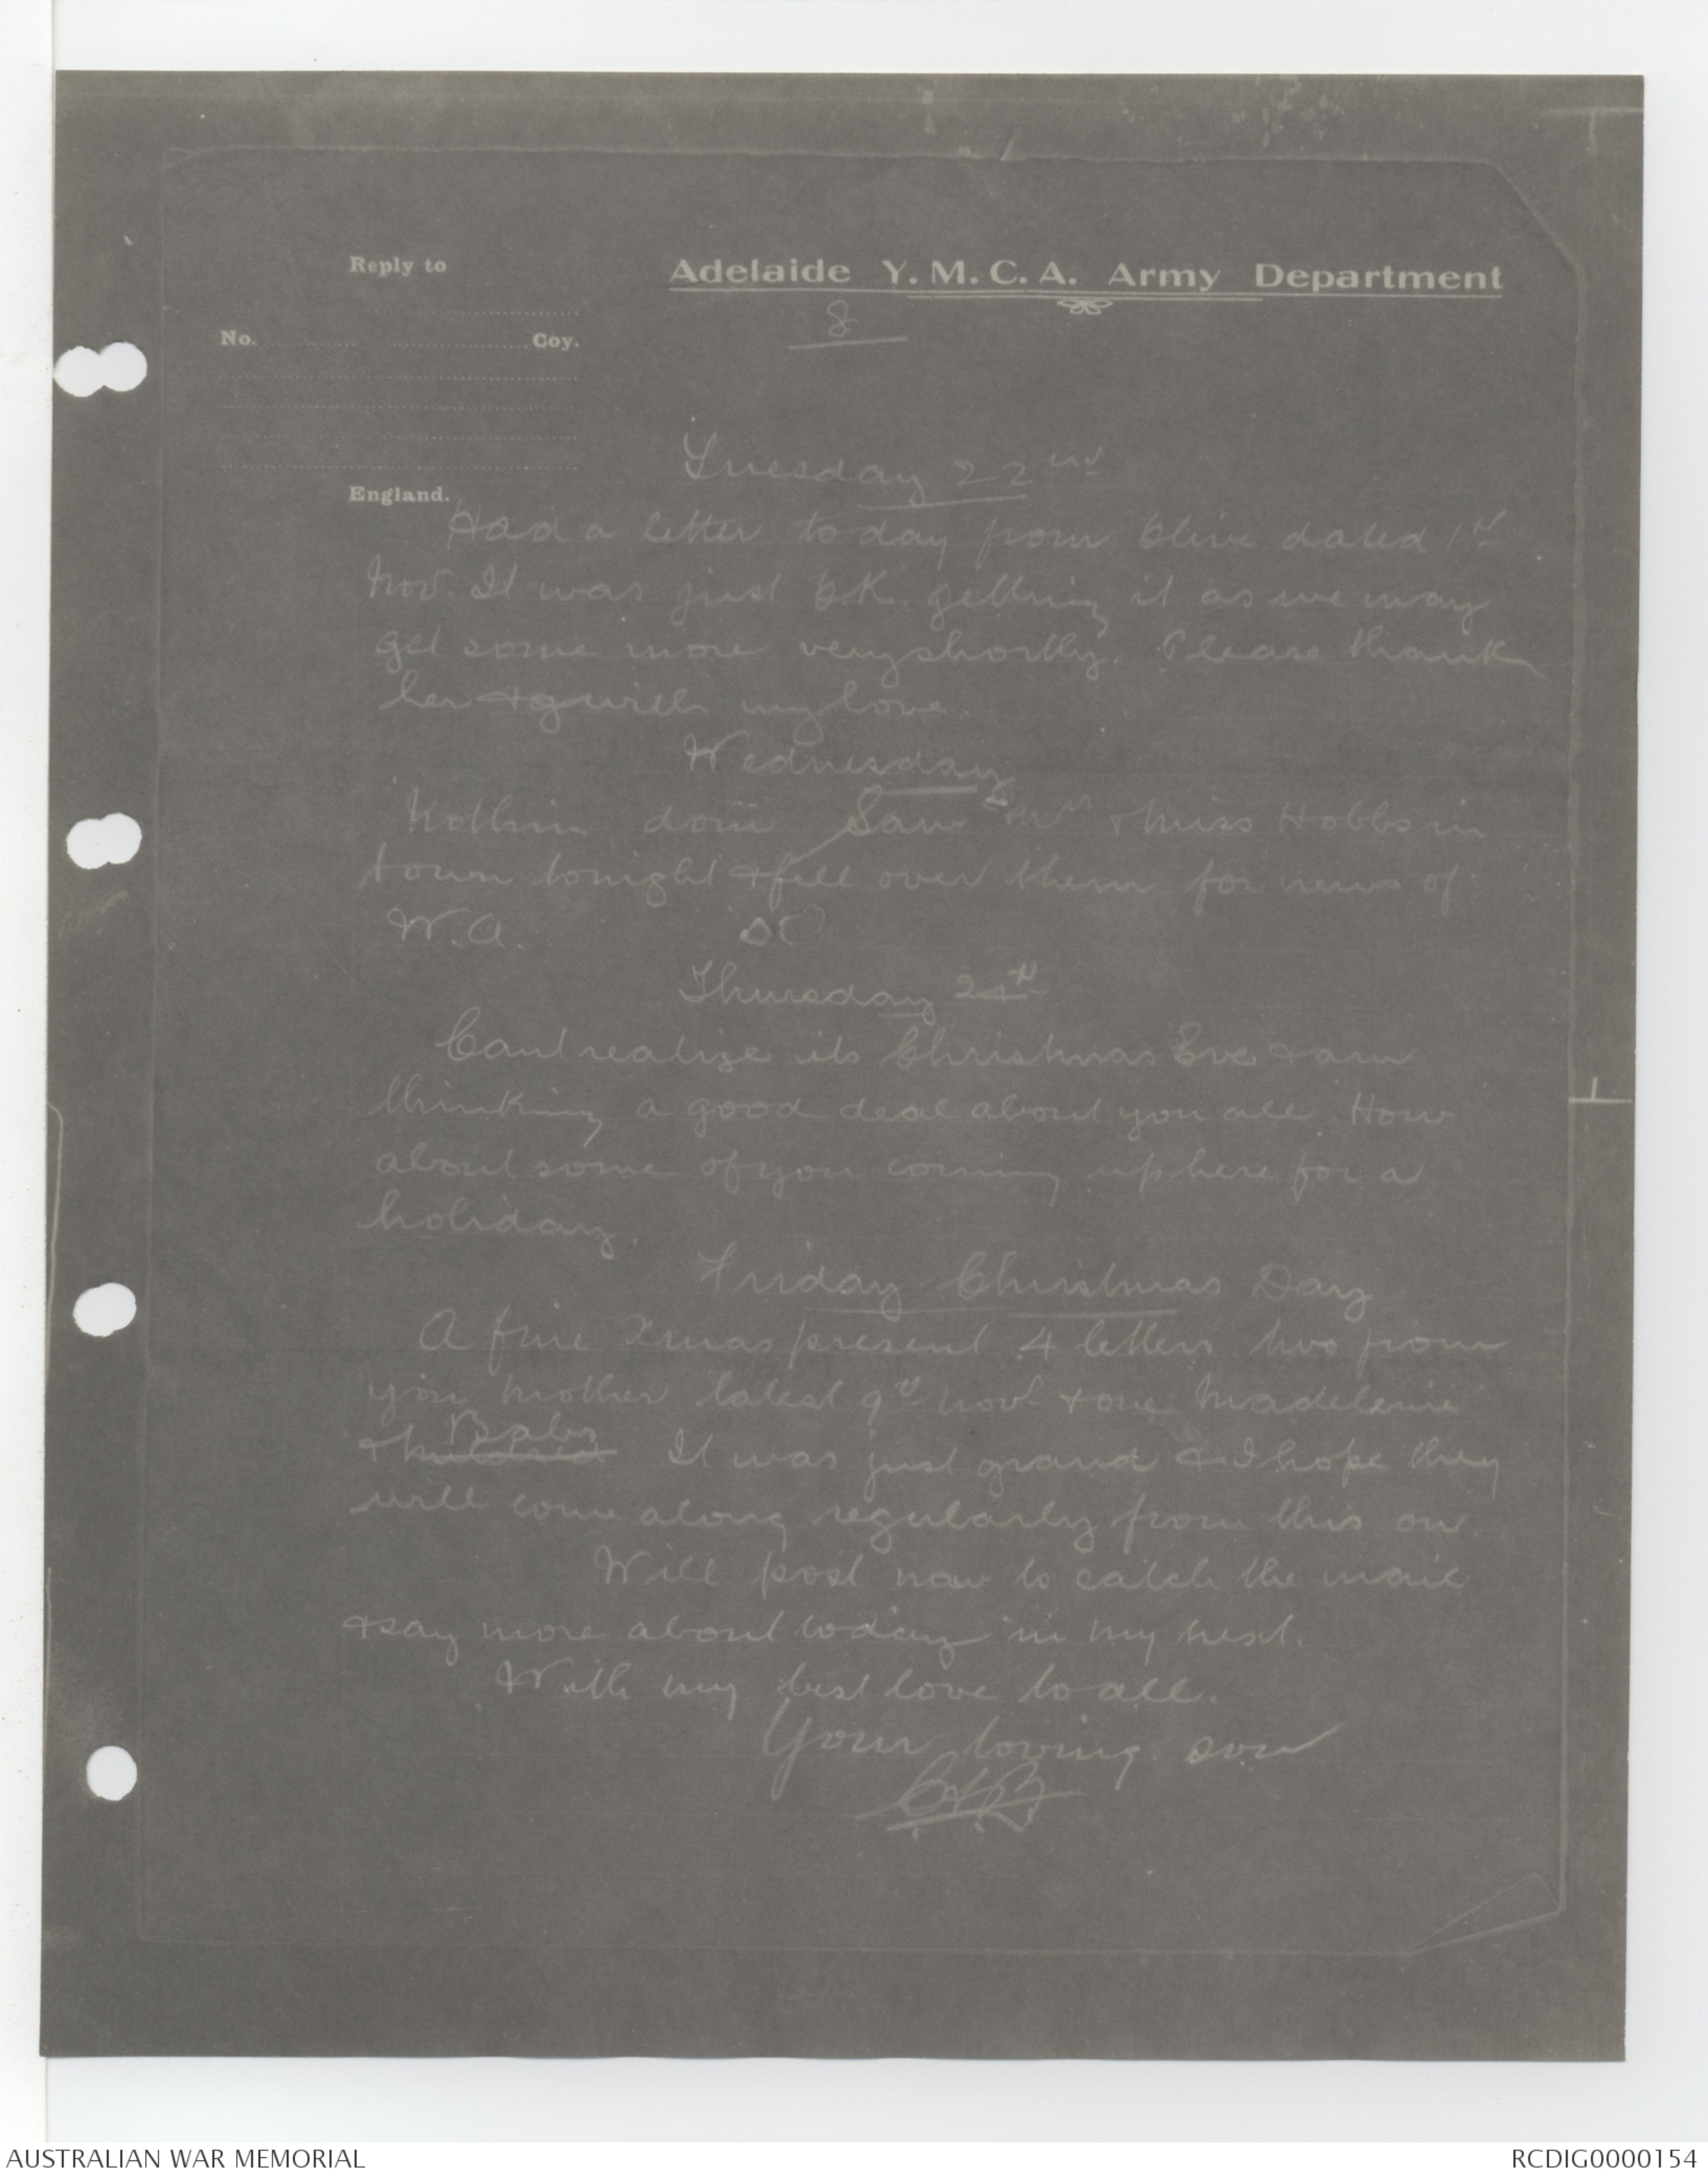 Reply to
Adelaide Y. M. C. A. Army Department
8
No. Coy.
England.
Tuesday 22nd
Had a letter today from Clive dated 1st
Nov. It was just O.K. getting it as we may
get some more very shortly. Please thank
her with my love.
Wednesday
Nothin doin Saw Mrs & Miss Hobbs in
town tonight & fell over them for news of
W.A.
Thursday 24th
Cant realize its Christmas Eve & am
thinking a good deal about you all. How
about some of you coming up here for a
holiday.
Friday Christmas Day
A fine Xmas present 4 letters two from
you mother latest 9th Nov & one Madeleine
& Baby It was just grand & I hope they
will come along regularly from this on.
Will post now to catch the mail
& say more about today in my next.
With my best love to all.
Your loving son
AUSTRALIAN WAR MEMORIAL
RCDIG0000154